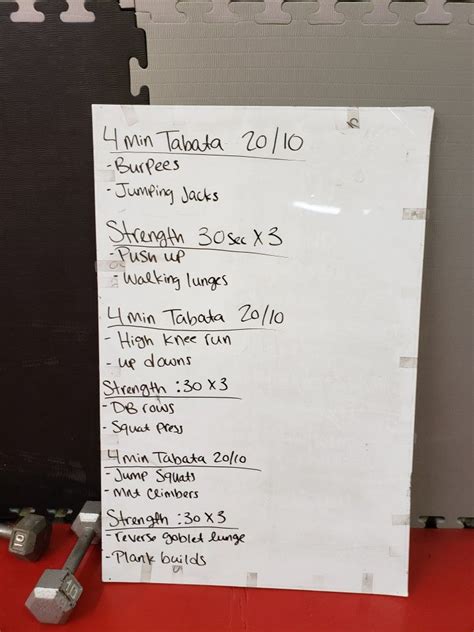 4 Min Tabata 20/10
- Burpees
- Jumping Jacks
Strength 30sec X3
- Push up
- Walking lunges
4 Min Tabata 20/10
- High knee run
- up downs
Strength :30 X3
- DB rows
- Squat press
4 min Tabata 20/10
- Jump Squats
- Mnt climbers
Strength :30 X3
- reverse goblet lunge
- Plank builds
10
10